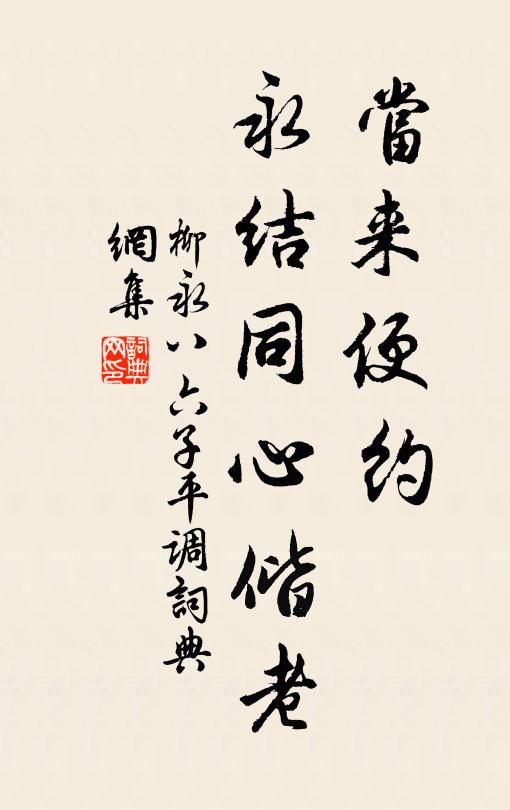 當来便约
永结同心偕老
柳永八六子平調詞典
網集
詞典网印